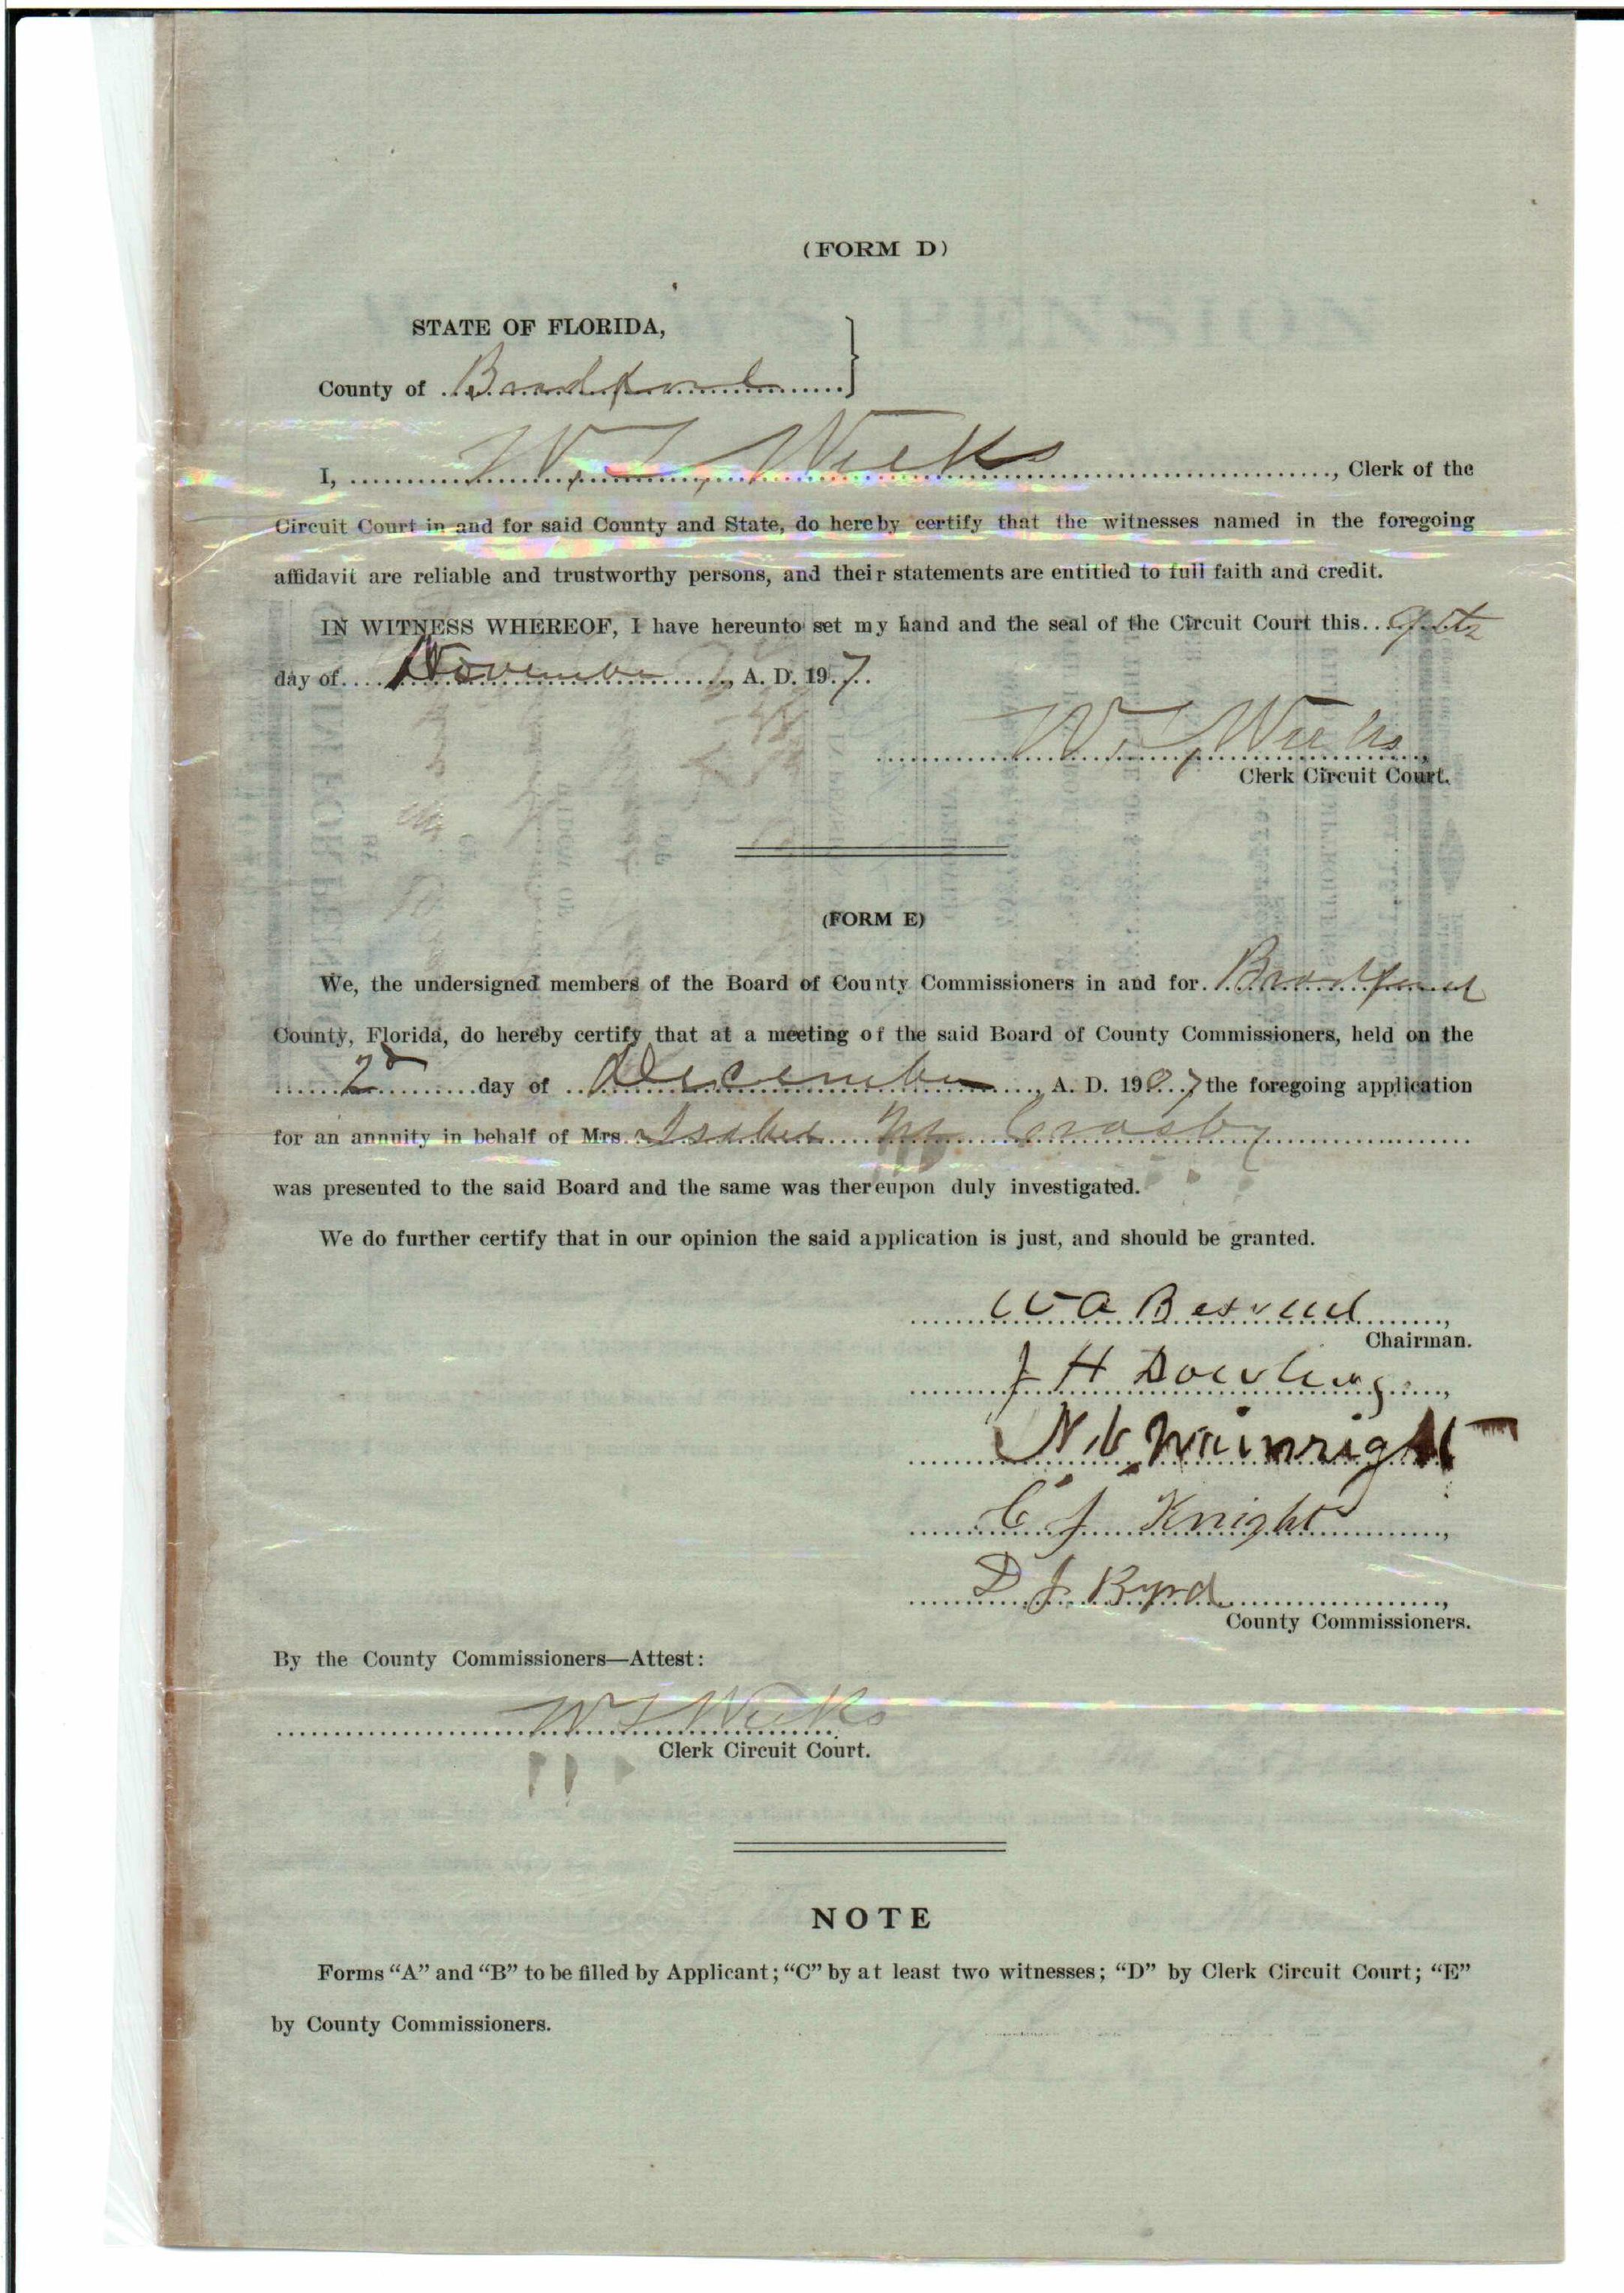 (FORM D)
STATE OF FLORIDA,
County of Bradford
I, W. T. Weeks, Clerk of the
Circuit Court in and for said County and State, do hereby certify that the witnesses named in the foregoing
affidavit are reliable and trustworthy persons, and their statements are entitled to full faith and credit.
IN WITNESS WHEREOF, I have hereunto set my hand and the seal of the Circuit Court this 9th
day of November, A. D. 19 7.
W. T. Weeks,
Clerk Circuit Court.
(FORM E)
We, the undersigned members of the Board of County Commissioners in and for Bradford
County, Florida, do hereby certify that at a meeting of the said Board of County Commissioners, held on the
2d day of December, A. D. 1907 the foregoing application
for an annuity in behalf of Mrs. M. Crosby
was presented to the said Board and the same was thereupon duly investigated.
We do further certify that in our opinion the said application is just, and should be granted.
W A
Chairman.
J H Dowling,
N. V. Wainright
C J Knight,
D J Byrd,
County Commissioners.
By the County Commissioners—Attest:
W T Weeks
Clerk Circuit Court.
NOTE
Forms “A” and “B” to be filled by Applicant; “C” by at least two witnesses; “D” by Clerk Circuit Court; “E”
by County Commissioners.